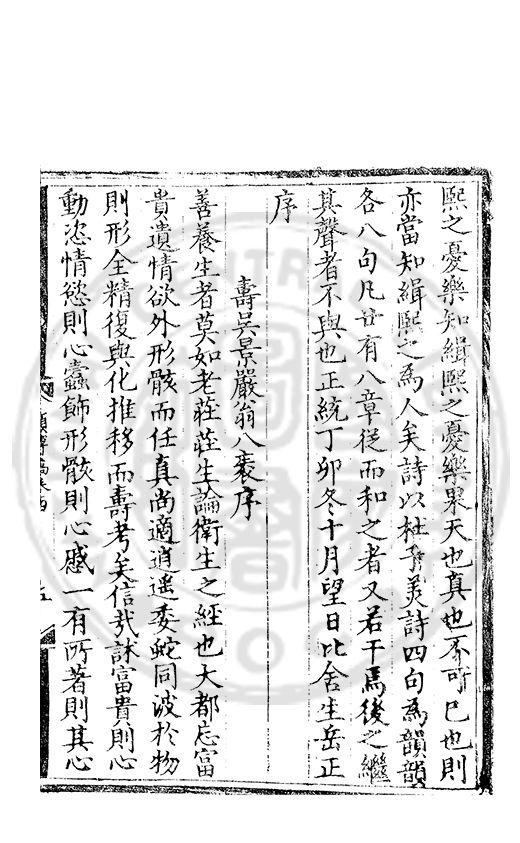 熙之憂樂知緝熙之憂樂果天也真也不可已也則
亦當知緝熙之為人矣詩以杜子美詩四句為韻韻
各八句凡廿有八章從而和之者又若干焉後之繼
其聲者不與也正統丁卯冬十月望日比舍生岳正
序
壽吳景嚴翁八袠序
善養生者莫如老莊莊生論衛生之經也大都忘富
貴遺情欲外形骸而任真尚適逍遥委蛇同波於物
則形全精復與化推移而壽考矣信哉訹富貴則心
動恣情慾則心蠹飾形骸則心戚一有所著則其心